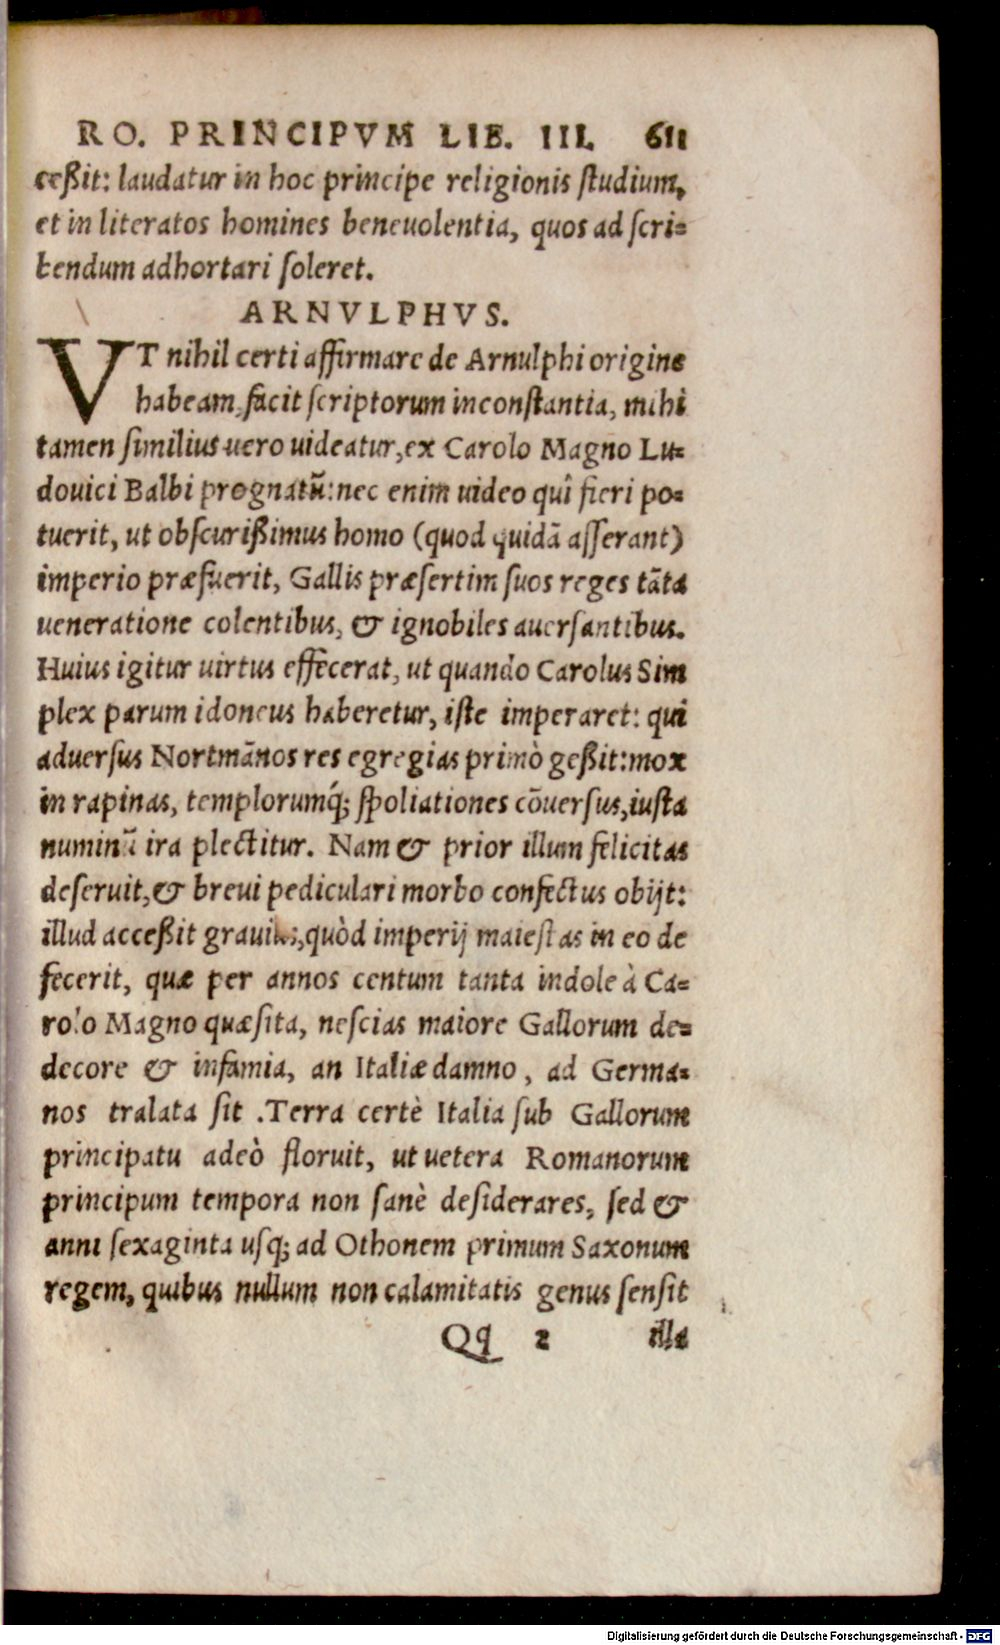 RO. PRINCIPVM LIB. III. 611
ceßit: laudatur in hoc principe religionis ſtudium,
et in literatos homines beneuolentia, quos ad ſcri-
bendum adhortari ſoleret.
ARNVLPHVS.
VT nihil certi affirmare de Arnulphi origine
habeam, facit ſcriptorum inconſtantia, mihi
tamen ſimilius uero uideatur, ex Carolo Magno Lu-
douici Balbi prognatũ: nec enim uideo quî fieri po-
tuerit, ut obſcurißimus homo (quod quidã aſſerant)
imperio præfuerit, Gallis præſertim ſuos reges tãta
ueneratione colentibus, & ignobiles auerſantibus.
Huius igitur uirtus effecerat, ut quando Carolus Sim
plex parum idoneus haberetur, iſte imperaret: qui
aduerſus Nortmãnos res egregias primò geßit: mox
in rapinas, templorumq́; ſpoliationes cõuerſus, iuſta
numinũ ira plectitur. Nam & prior illum felicitas
deſeruit, & breui pediculari morbo confectus obijt:
illud acceßit grauius, quòd imperij maieſtas in eo de
fecerit, quæ per annos centum tanta indole à Ca-
rolo Magno quæſita, neſcias maiore Gallorum de-
decore & infamia, an Italiæ damno, ad Germa-
nos tralata ſit. Terra certè Italia ſub Gallorum
principatu adeò floruit, ut uetera Romanorum
principum tempora non ſanè deſiderares, ſed &
anni ſexaginta uſq; ad Othonem primum Saxonum
regem, quibus nullum non calamitatis genus ſenſit
Qq 2 illa
Digitalisierung gefördert durch die Deutsche Forschungsgemeinschaft - DFG